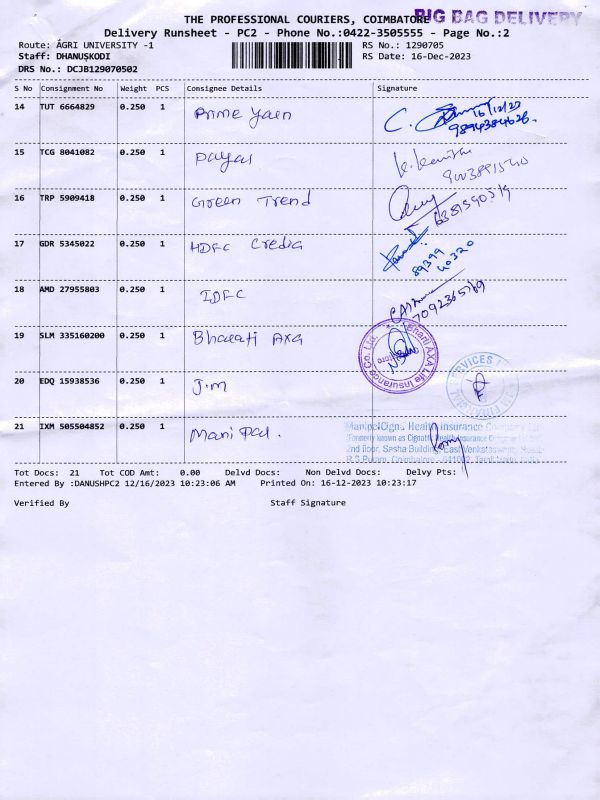 THE PROFESSIONAL COURIERS, COIMBATORE
BIG BAG DELIVERY
Delivery Runsheet - PC2 - Phone No.:0422-3505555 - Page No.:2
Route: AGRI UNIVERSITY -1 RS No.: 1290705
Staff: DHANUSKODI RS Date: 16-Dec-2023
DRS No.: DCJB129070502
S No Consignment No Weight PCS Consignee Details Signature
14 TUT 6664829 0.250 1 Prime Yaen
16/12/23
9894384626.
15 TCG 8041082 0.250 1 Payal
16 TRP 5909418 0.250 1 Green Trend
17 GDR 5345022 0.250 1 HDFC Credia
89399
40320
18 AMD 27955803 0.250 1 IDFC
19 SLM 335160200 0.250 1 Bharati Axa
Bharti AXA Life Insurance Co. Ltd.
20 EDQ 15938536 0.250 1 J.m
21 IXM 505504852 0.250 1 Mani Pal.
ManipalCigna Health Insurance
2nd floor, Sasha Building, East Venkatasamy
R.S.Puram, Coimbatore - 641002, Tamil Nadu, India
Tot Docs: 21 Tot COD Amt: 0.00 Delvd Docs: Non Delvd Docs: Delvy Pts:
Entered By :DANUSHPC2 12/16/2023 10:23:06 AM Printed On: 16-12-2023 10:23:17
Verified By Staff Signature